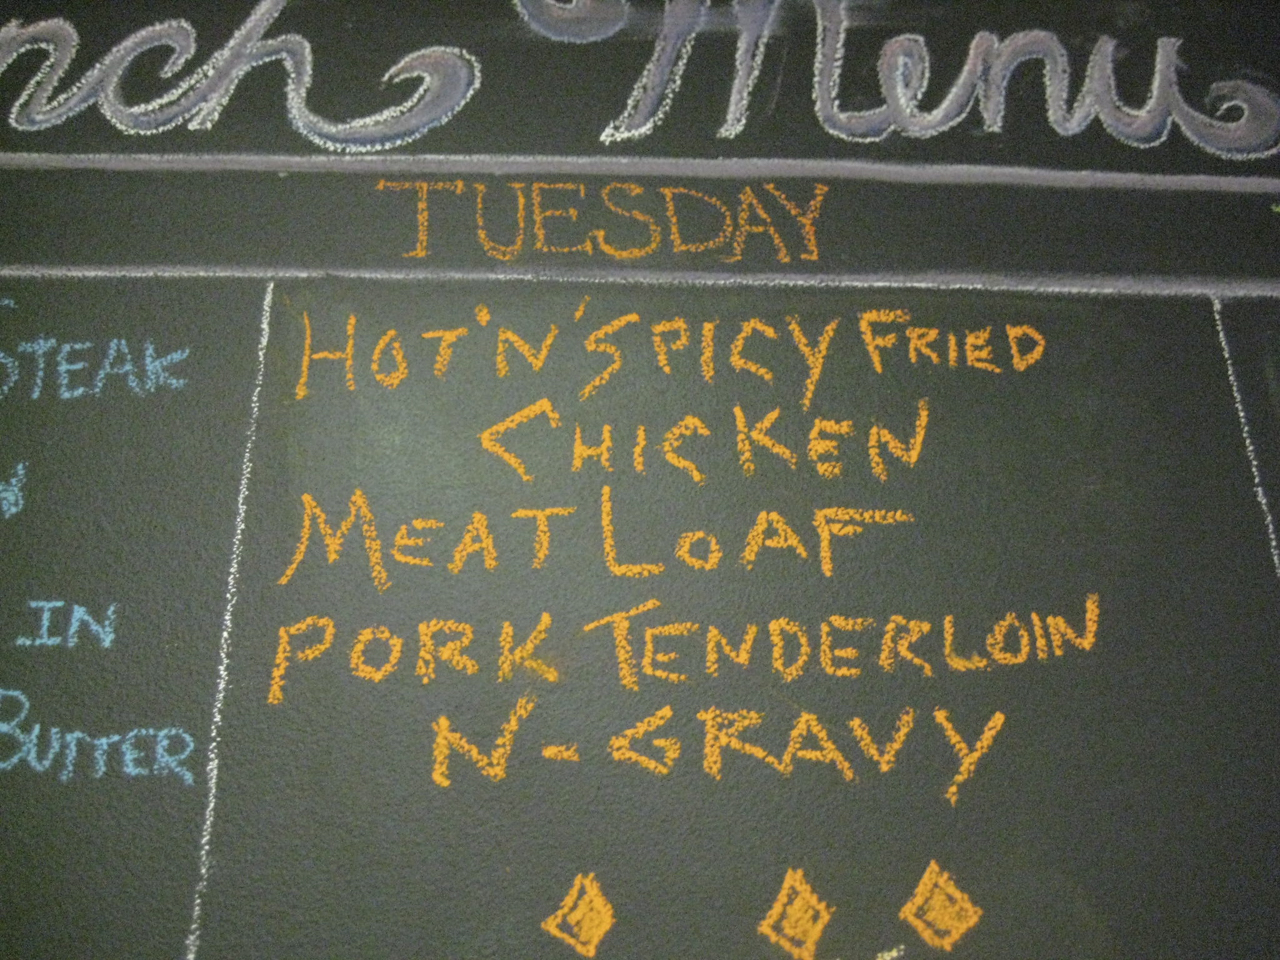 nch Menu
TUESDAY
STEAK
IN
BUTTER
HOT'N'SPICY FRIED
CHICKEN
MEAT LOAF
PORK TENDERLOIN
N-GRAVY